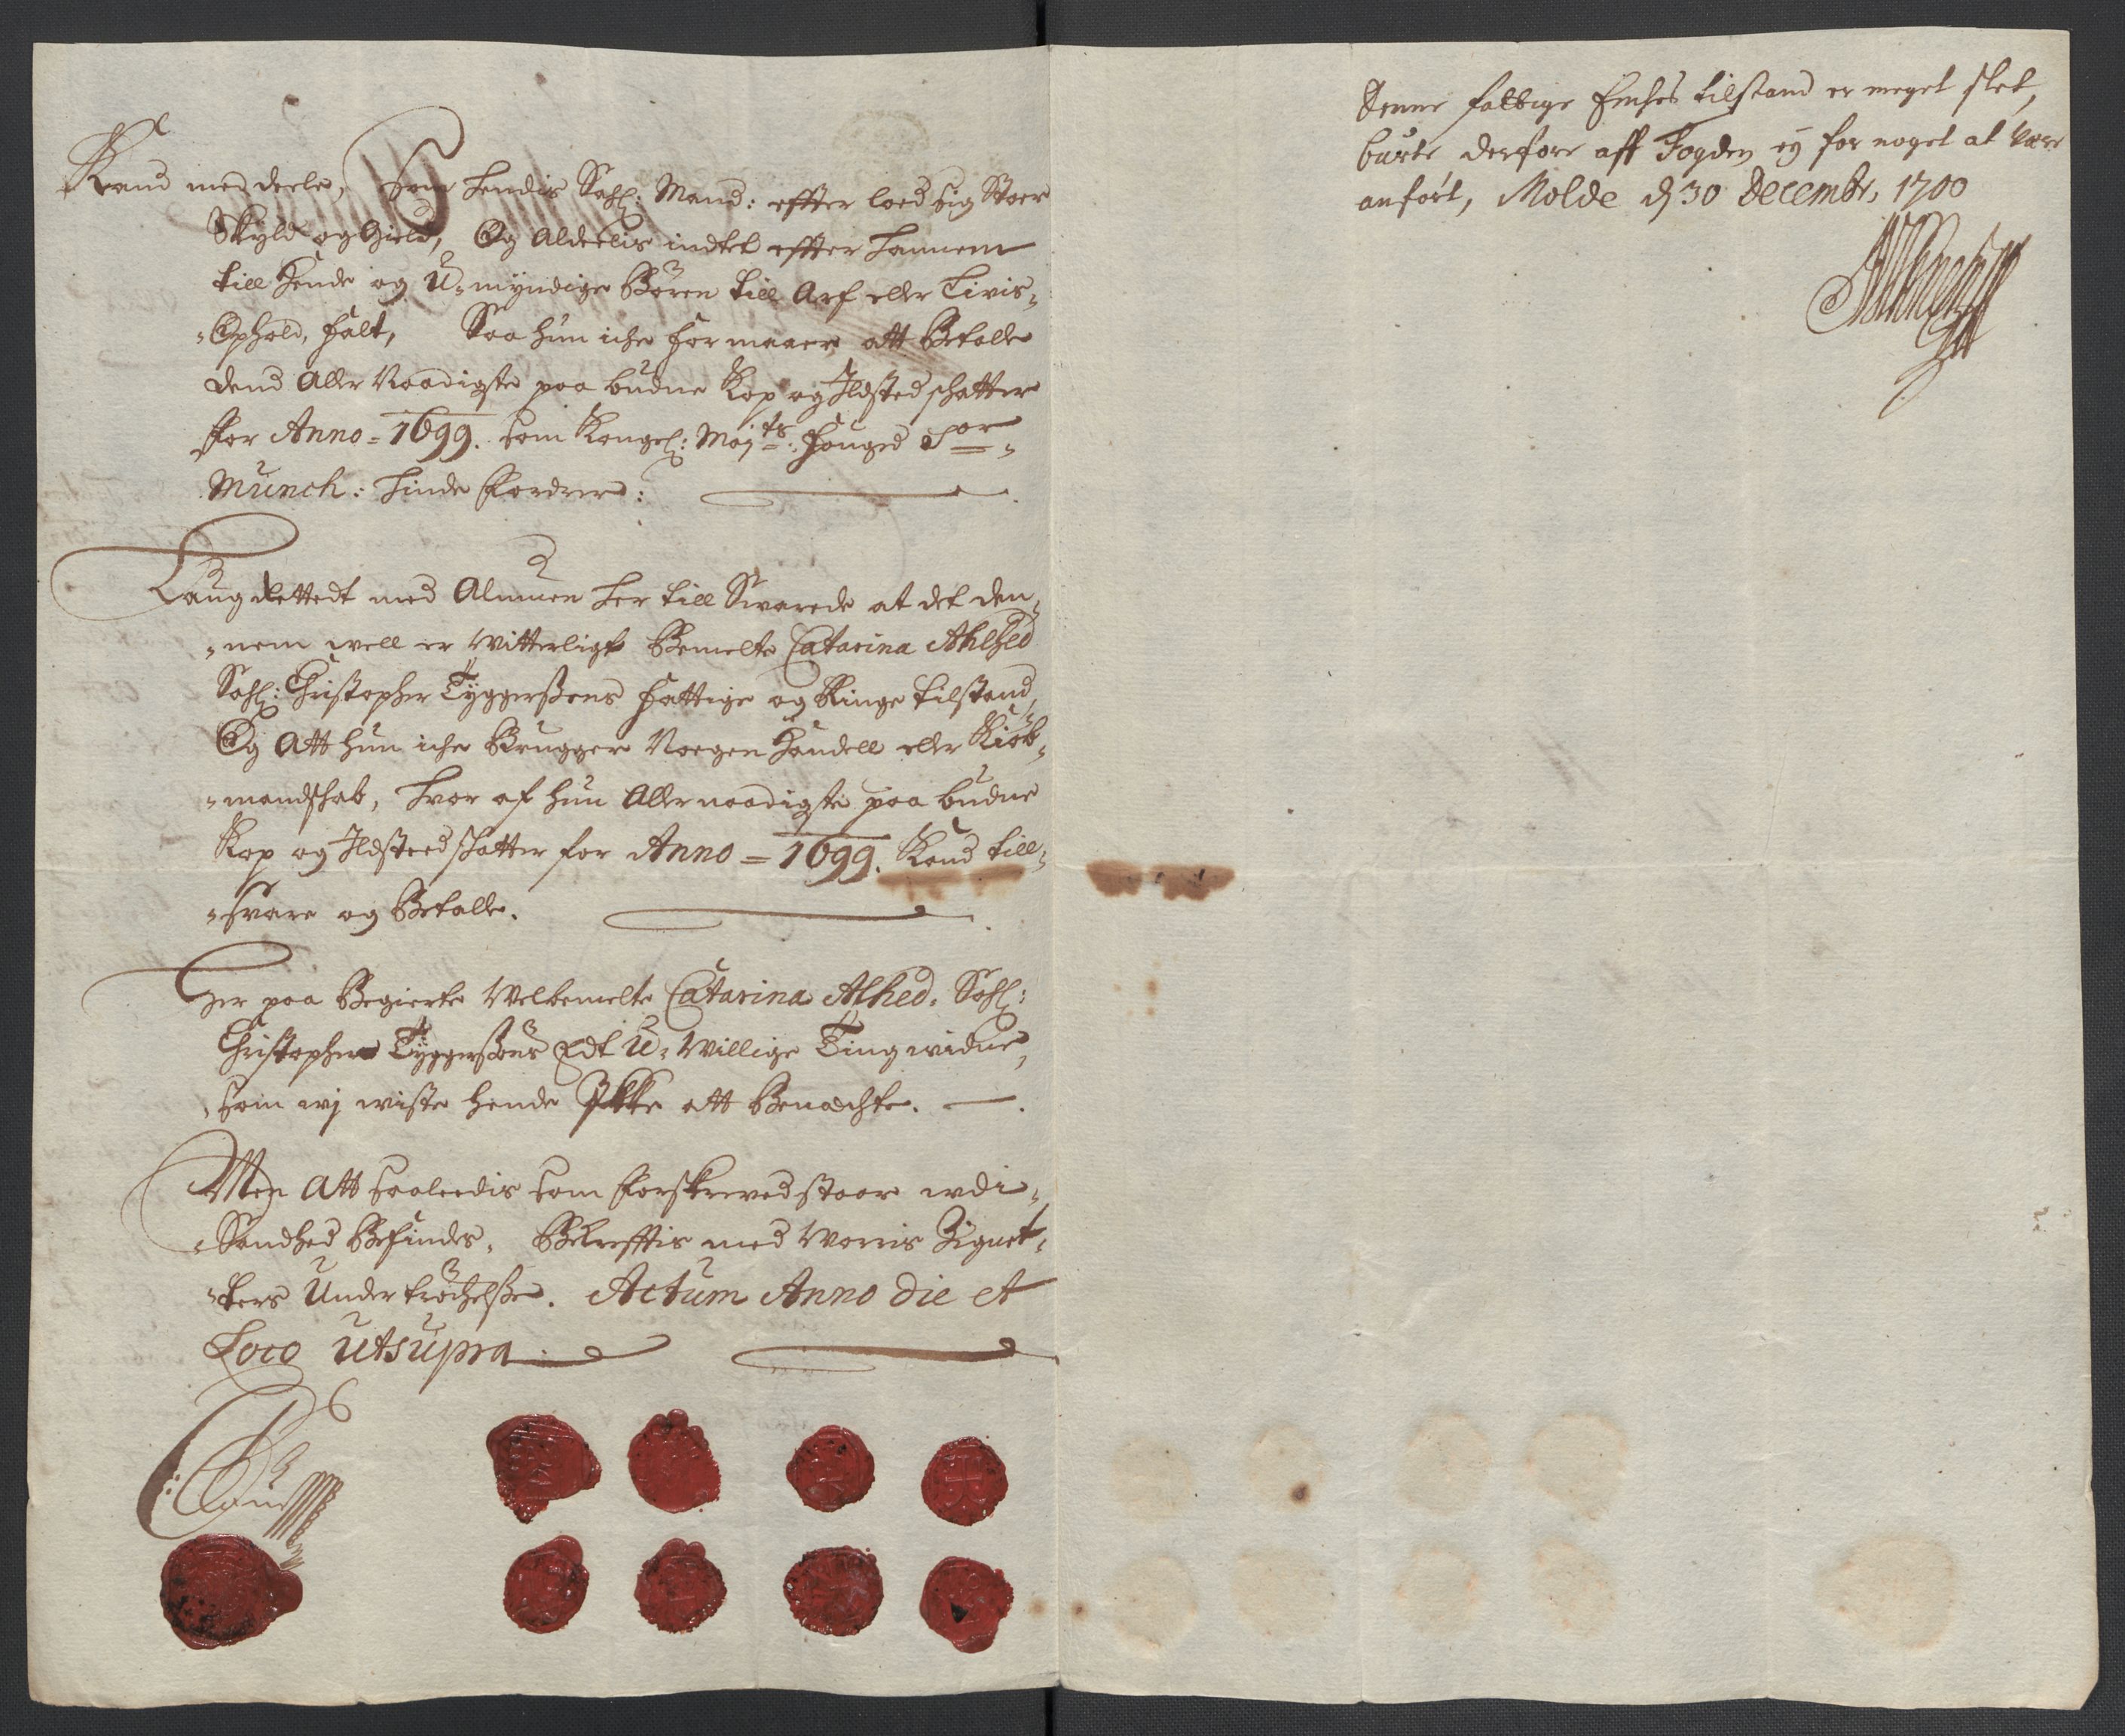 Kand meddeele, som hendis Sahl: Mand: effter loed sig Stoer
Skyld og Gield, Og Aldeelis indtet effter hannem
till hende og U-myndige Børen till Arf eller Livis-
-Ophold, falt, Saa hun iche formaaer att Betalle
dend Aller Naadigste paa budne Kop og Ildsted schatter
for Anno = 1699. som Kongel: Maj:ts: fouged Sor-
Munch: hinde fordrer:
Laug Rettedt med Almuen her till Svarede at det den-
-nem well er Witterligt Bemelte Catarina Alhed
Sahl: Christopher Tyggersøens fattige og Ringe tilstand,
Og Att hun iche Brugger Noegen Handell eller Kiøb-
-mandschab, hvor af hun Allernaadigste paa budne
Kop og Ildsteed schatter for Anno = 1699. Kand till-
-svare og Betalle.
Her paa Begierte Welbemelte Catarina Alhed, Sahl:
Christopher Tyggersøns Edt U-Willige Tingwidne,
som wj wiste hende Ikke att Benæchte.
Men Att saaleedis som forskrewed staar udi-
-Sandhed Befindes, Bekrefftis med Worris Zignet-
-ters Undertrøchelsse. Actum Anno die et
Loco utsupra
Denne fattige Enches tilstand er meget slet,
burte derfore aff Fogden ej for noget at være
anført, Molde d 30 Decembr, 1700